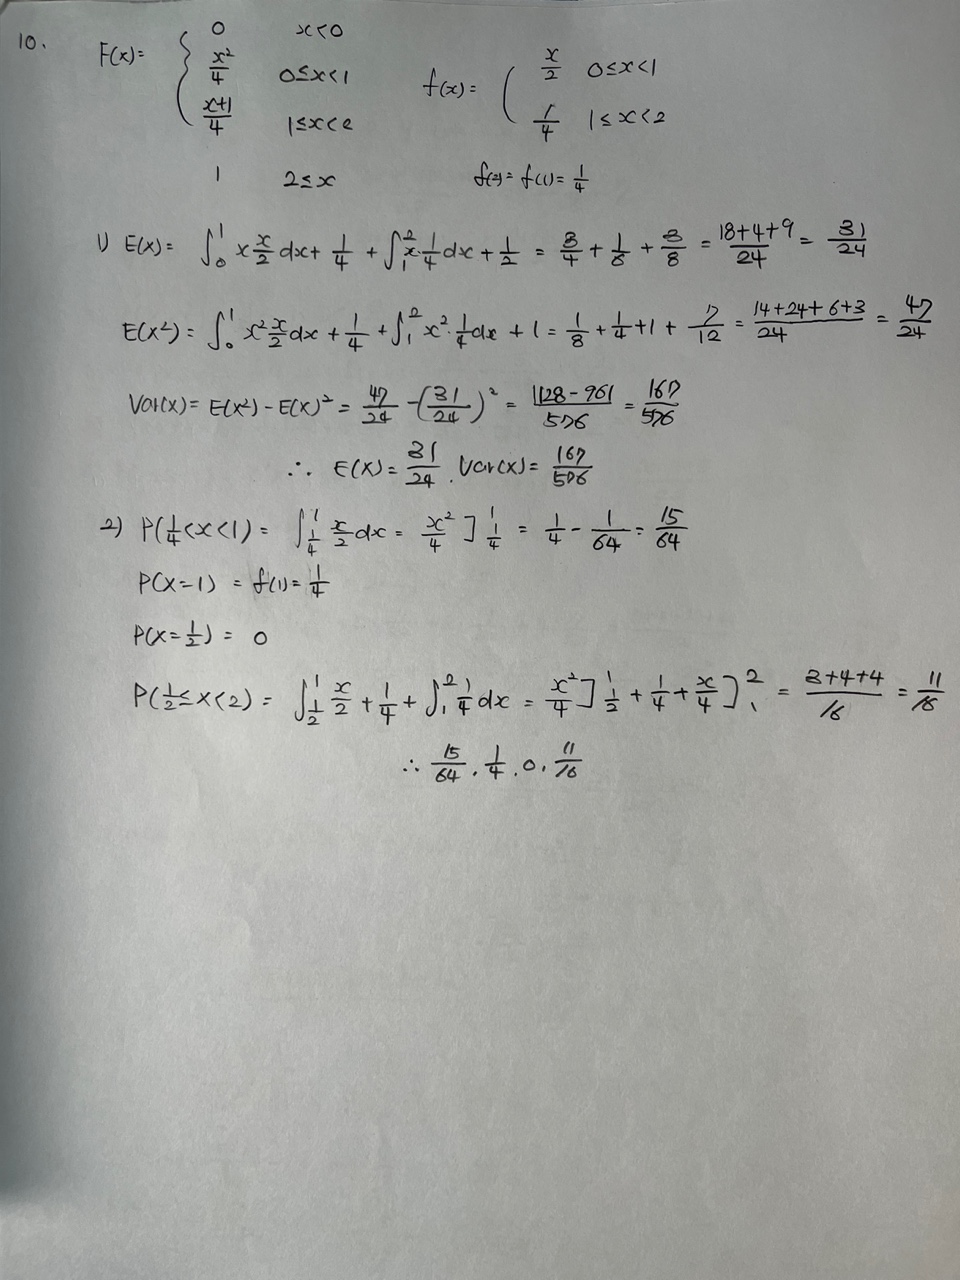 10. F(x)= { 0 x<0
x²/4 0≤x<1
x+1/4 1≤x<2
1 2≤x
f(x)= ( x/2 0≤x<1
1/4 1≤x<2
f(2)= f(1)= 1/4
1) E(x)= ∫₀¹ x x/2 dx + 1/4 + ∫₁² x·1/4 dx + 1/2 = 3/4 + 1/6 + 3/8 = 18+4+9/24 = 31/24
E(x²) = ∫₀¹ x² x/2 dx + 1/4 + ∫₁² x²·1/4 dx + 1 = 1/8 + 1/4 + 1 + 7/12 = 14+24+6+3/24 = 47/24
Var(x) = E(x²) - E(x)² = 47/24 - (31/24)² = 1128-961/576 = 167/576
∴ E(X)= 31/24 . Var(x)= 167/576
2) P(1/4<x<1) = ∫_{1/4}^1 x/2 dx = x²/4 ]_{1/4}^1 = 1/4 - 1/64 = 15/64
P(X=1) = f(1)= 1/4
P(X=1/2) = 0
P(1/2≤x<2) = ∫_{1/2}^1 x/2 + 1/4 + ∫₁² 1/4 dx = x²/4 ]_{1/2}^1 + 1/4 + x/4 ]₁² = 3+4+4/16 = 11/16
∴ 15/64 . 1/4 . 0 . 11/16